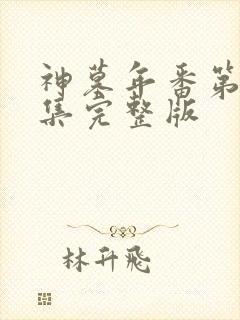 神墓年番第
集完整版
林升飛